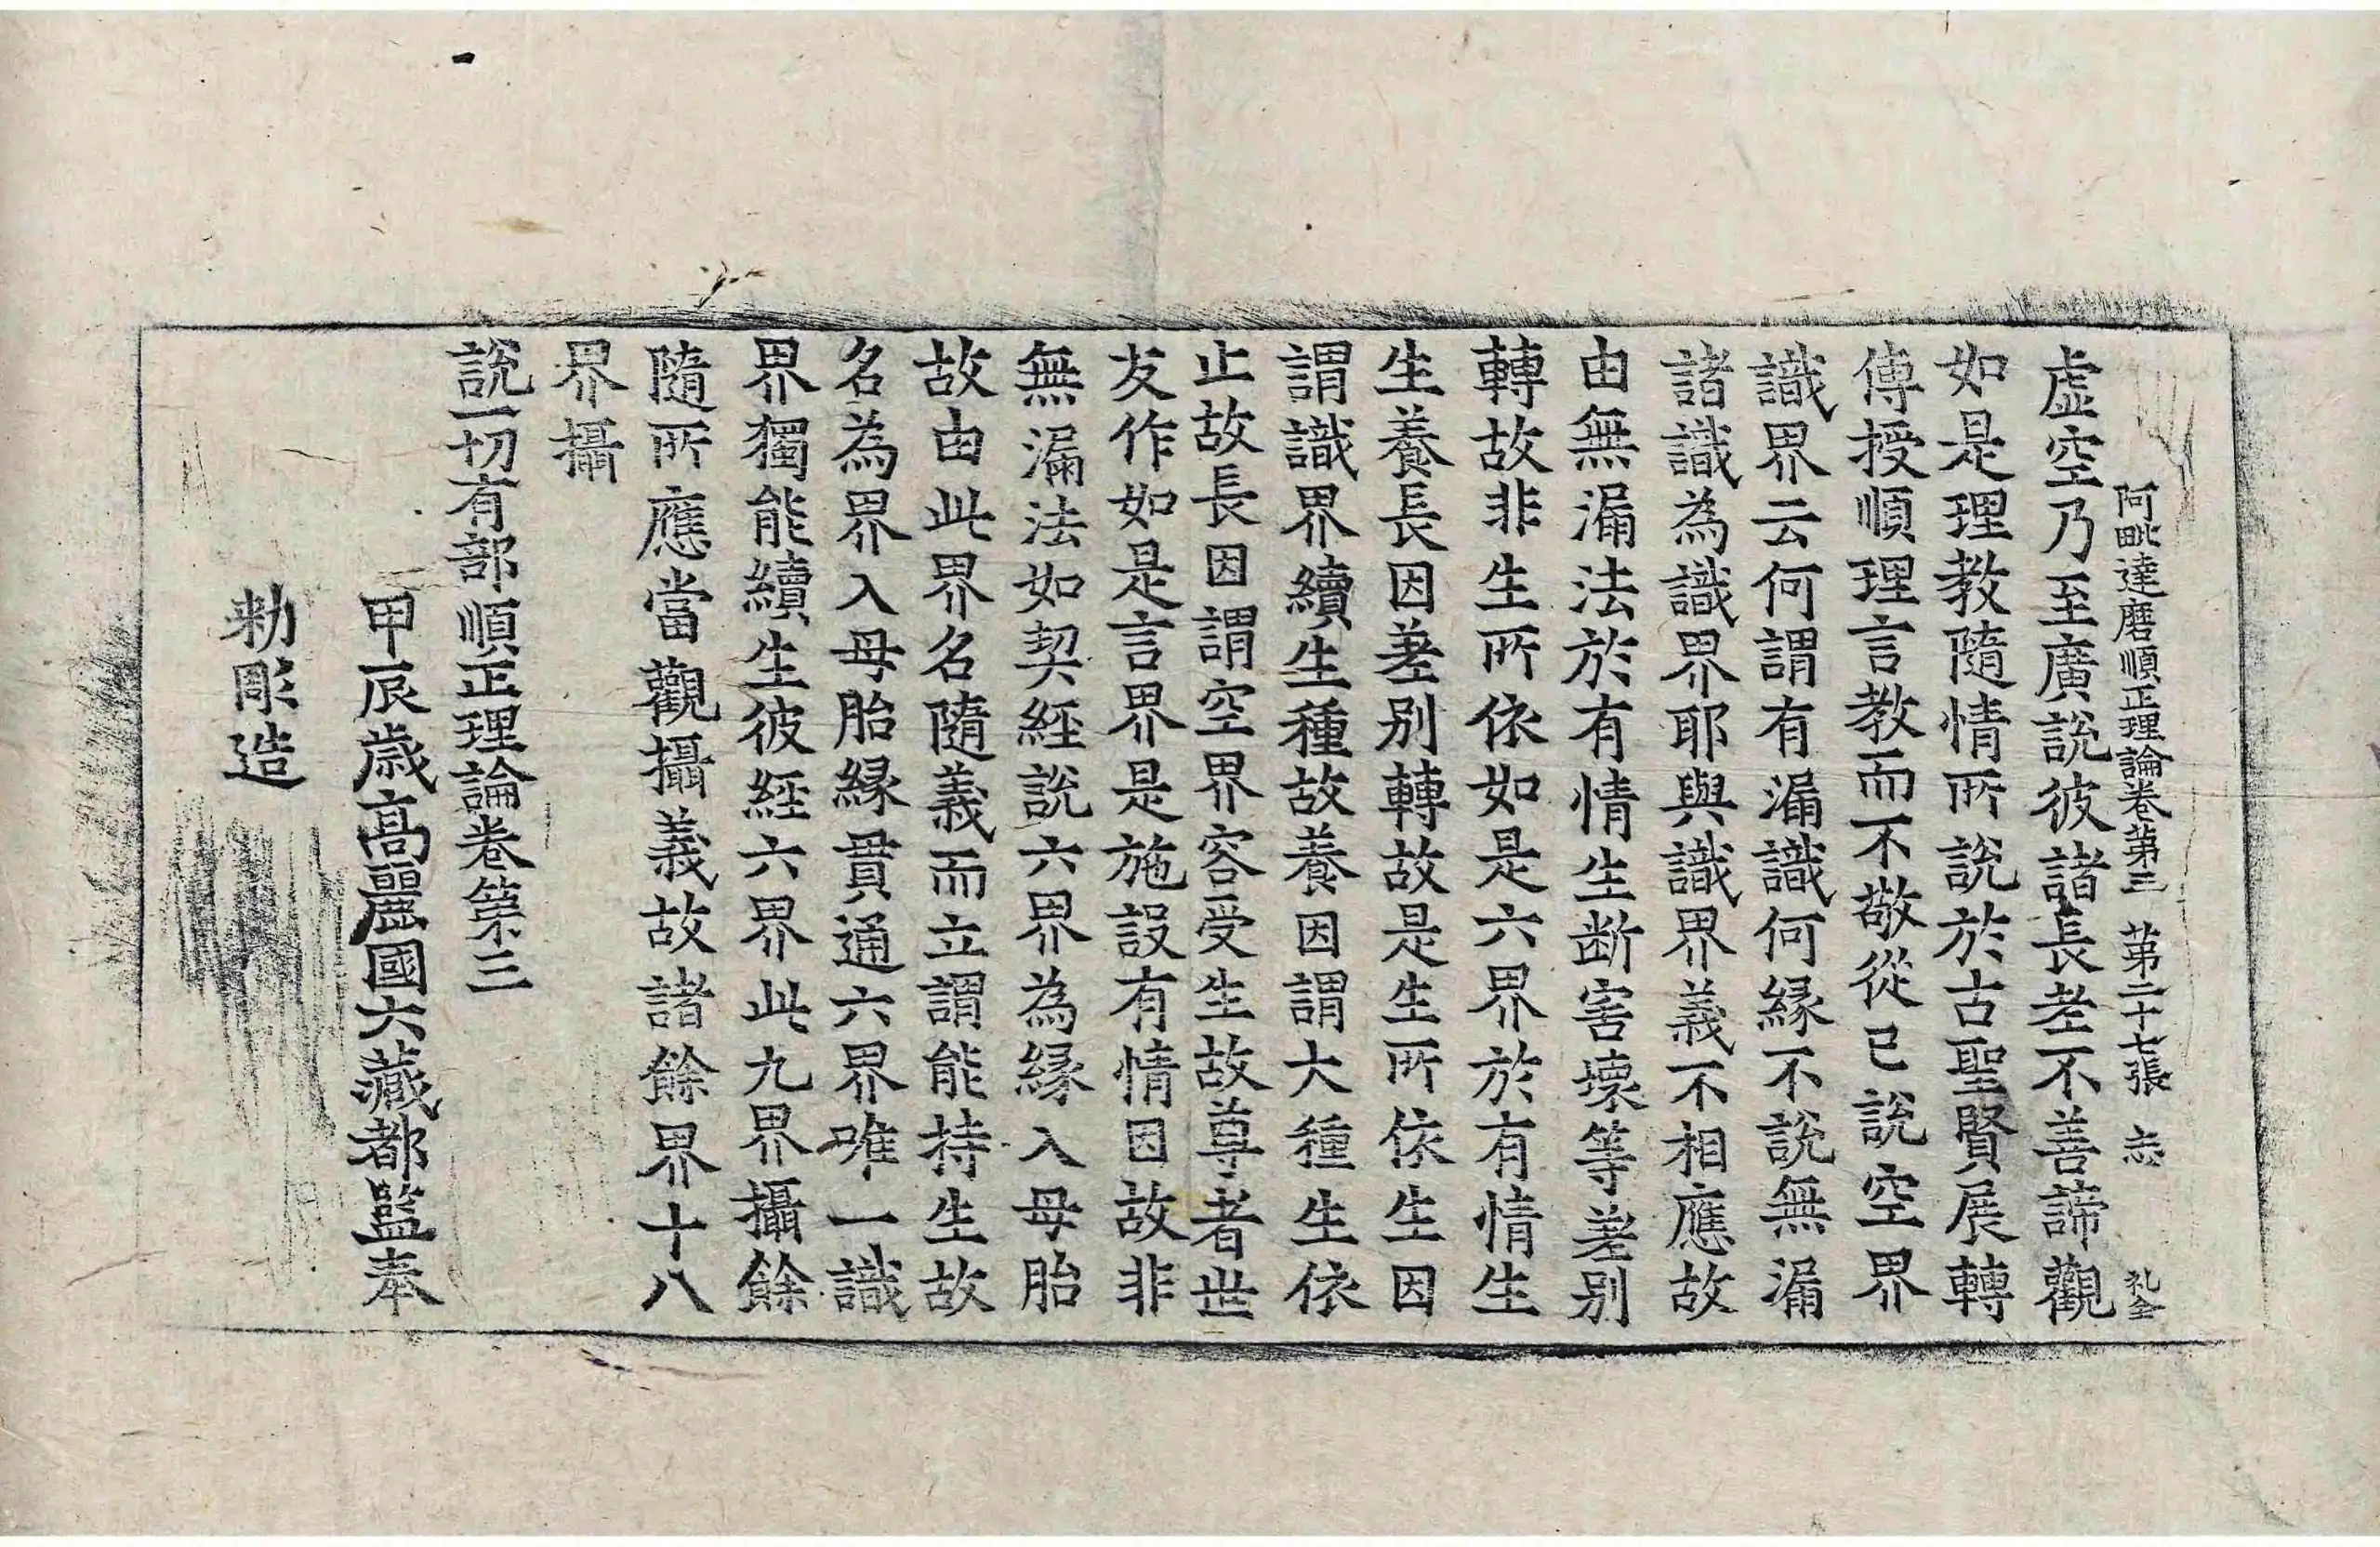 阿毗達磨順正理論卷第三　第二十七張　志　礼全
虛空乃至廣說彼諸長老不善諦觀
如是理教隨情所說於古聖賢展轉
傳授順理言教而不敬從已說空界
識界云何謂有漏識何緣不說無漏
諸識為識界耶與識界義不相應故
由無漏法於有情生斷害壞等差別
轉故非生所依如是六界於有情生
生養長因差別轉故是生所依生因
謂識界續生種故養因謂大種生依
止故長因謂空界容受生故尊者世
友作如是言界是施設有情因故非
無漏法如契經說六界為緣入母胎
故由此界名隨義而立謂能持生故
名為界入母胎緣貫通六界唯一識
界獨能續生彼經六界此九界攝餘
隨所應當觀攝義故諸餘界十八
界攝
說一切有部順正理論卷第三
甲辰歲高麗國大藏都監奉
勅彫造